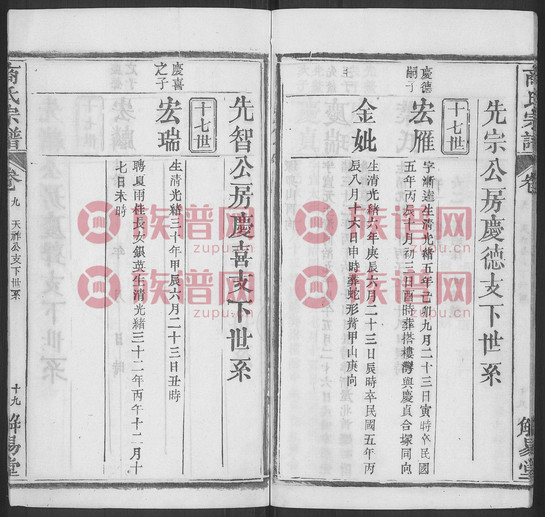 商氏宗譜
卷
解易堂
先宗公房慶德支下世系
十七世
慶德
嗣子
宏雁
字漸逵生清光緒五年己卯九月二十三日寅時卒民國
五年丙辰十月初三日酉時葬搭樓灣與慶貞合塚同向
金妣
生清光緒六年庚辰六月二十三日辰時卒民國五年丙
辰八月十六日申時葬蛇形背甲山庚向
先智公房慶喜支下世系
十七世
慶喜
之子
宏瑞
生清光緒三十年甲辰六月二十三日丑時
聘夏雨桂長女銀英生清光緒三十二年丙午十二月十
七日未時
商氏宗譜
卷九
天祥公支下世系
十九
解易堂
族谱网
zupu.cn
族谱网
zupu.cn
族谱网
zupu.cn
族谱网
zupu.cn